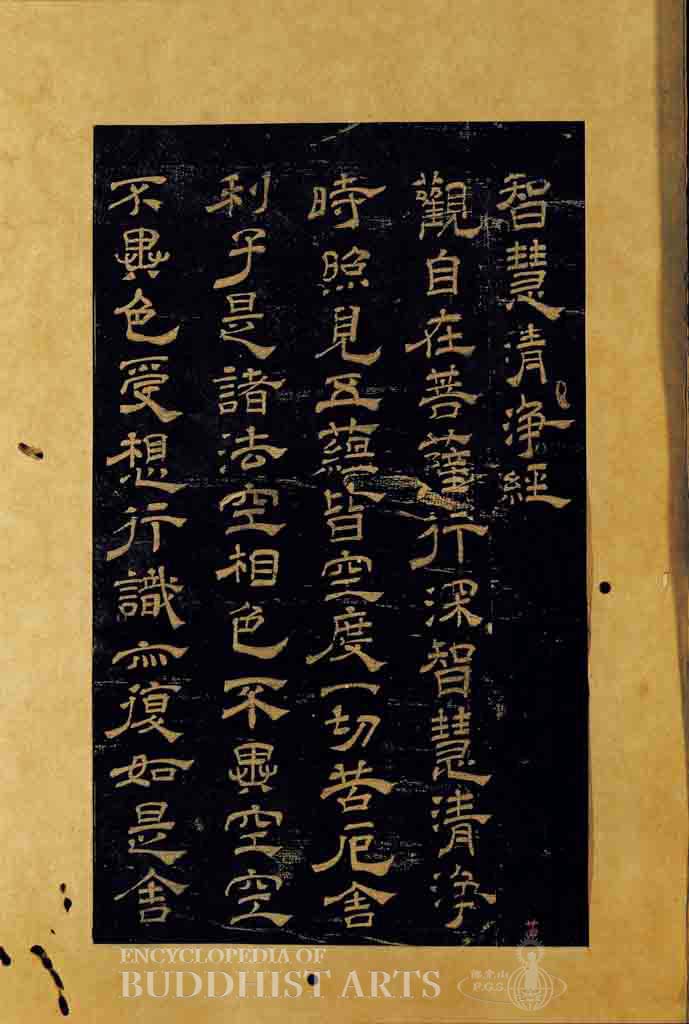 智慧清淨經
觀自在菩薩行深智慧清淨
時照見五蘊皆空度一切苦厄舍
利子是諸法空相色不異空空
不異色受想行識亦復如是舍
ENCYCLOPEDIA OF
BUDDHIST ARTS
佛光山
F.G.S.